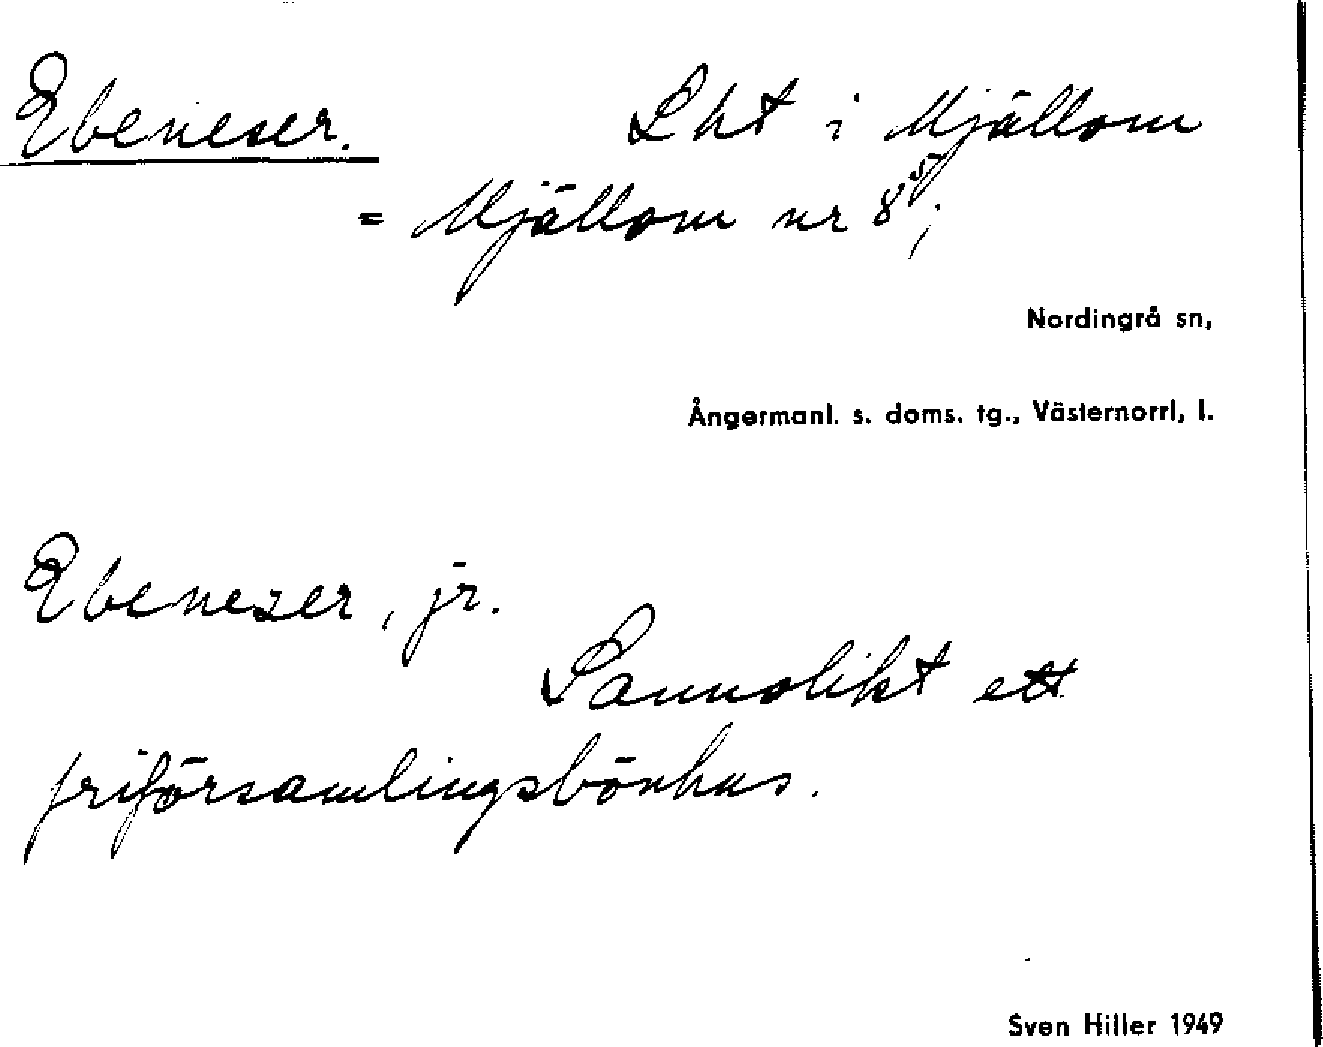 Ebeneser. Lht i Mjällom
= Mjällom nr 8⁵;
Nordingrå sn,
Ångermanl. s. doms. tg., Västernorrl, l.
Ebenezer, jr.
Sannolikt ett
friförsamlingsbönhus.
Sven Hiller 1949